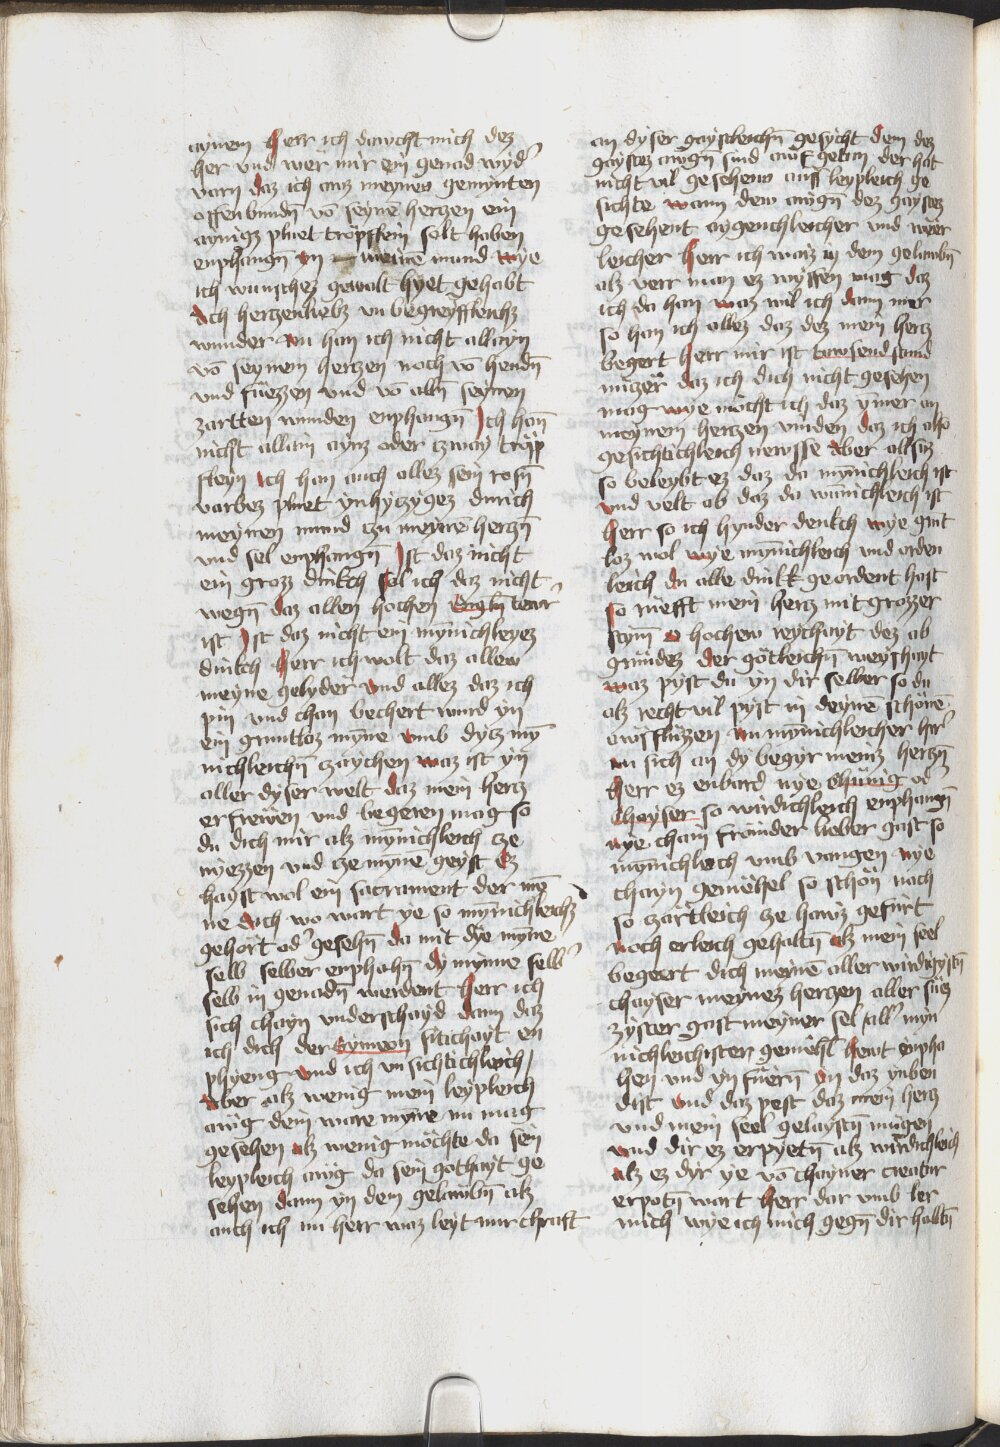 aynem Herr ich dawcht mich dez
her vnd wer mir ein genad wyd'
varn daz ich auz meynen gemynten
offen bundn̄ vō seynē herczen ein
aynigz pluet tröpffein solt haben
enphangn̄ yn meinē mund Wye
ich wunschez gewalt hyet gehabt
Ach herczenliebz vn begreyffleichz
wunder Nu han ich nicht allayn
vō seynem herczen noch vō hendn̄
vnd füezzen vnd vō alln̄ seynen
zartten wunden enphangn̄ Ich han
nicht allain aynz oder czway tröpp
fleyn Ich han auch allez sein rosn̄
varbez pluet ynhyczygez durich
meynen mund czu meynē herczn̄
vnd sel enphangn̄ Ist daz nicht
ein grozz dinkch Sol ich daz nicht
wegn̄ daz allen hochen Engln̄ tewr'
ist Ist daz nicht ein mynnichleyez
dinkch Herr ich wolt daz allew
meyne gelyder Vnd allez daz ich
pin vnd chan bechert wurd yn
ein gruntloz mynne Vmb dycz myn̄
nichleichn̄ czaychen Waz ist yn
aller dyser welt daz mein hercz
erfrewen vnd begeren mag so
du dich mir alz mynnichleich cze
nyezzen vnd cze mynnē geyst Ez
hayst wol ein sacrament der myn̄
ne Ach wo wart ye so mynnichleichz
gehört od' gesehn̄ da mit dye mynne
selb selber enphahn̄ dy mynne selb'
selb in genadn̄ werdent Herr ich
sich chayn vnderschayd dann daz
ich dich der Symeon sitichayt en
phyeng Vnd ich vn sichtichleich
Aber alz wenig mein leypleich
awg dein ware mynne nu mag
gesehen Alz wenig möchte da sein
leypleich awg da sein gothayt ge
sehen dann yn den gelawbn̄ alz
auch ich nu herr waz leyt mir chraft
an dyser gaystleichn̄ gesycht Dem dez
gaystez awgn̄ sind awf getan der hat
nicht vil gesehens auss leypleich ge
sichte Wann dew awgn̄ dez gaystez
gesehent aygenchleicher vnd wer
leicher Herr ich waiz in dem gelawbn̄
alz verr man ez wyssen mag daz
ich da han Waz wil ich dann mer
so han ich allez daz dez mein hercz
begert Herr mir ist tawsend stund
nüczer daz ich dich nicht gesehen
mag Wye möcht ich daz ymer an
meynem herczen vinden daz ich also
gesichtichleich newsse Aber allsuz
so beleybt ez daz da mynnichleich ist
Vnd velt ab daz da wan̄nichleich ist
Herr so ich hynder denkch Wye gut
loz wol Wye mynnichleich vnd orden
leich du alle dinkk geordent hast
So rüefft mein hercz mit grozzer
stym̄ O hochew reychayt dez ab
gründez Der götleichn̄ weyshayt
Waz pyst du yn dir selber so du
alz recht vil pyst in deynē schönē
awsflüzzen Nu mynnichleicher her'
Nu sich an dy begyr meinz herczn̄
Herr ez enbard nye chunig od'
Chayser so wirdichleich enphangn̄
Nye cham frömder lieber gast so
mynnichleich vmb vangen Nye
chayn gemëhel so schön noch
so czärtleich cze hawz gefürt
Noch erleich gehaltn̄ Alz mein seel
begeert dich meynē aller wirdigystn̄
chayser meynez herczen aller süez
zyster gast meyner sel aller myn
nichleichister gemëhl Hewt enpha
hen vnd yn fuern̄ in daz ynben
dist Vnd daz pest daz mein hercz
vnd mein seel gelaystn̄ mügen
Vnd dir ez erpyetn̄ alz wirdichleich
Alz ez dyr ye vō chayner creatur
erpotn̄ wart Herr dar vmb ler
mich wye ich mich gegn̄ dir halltn̄